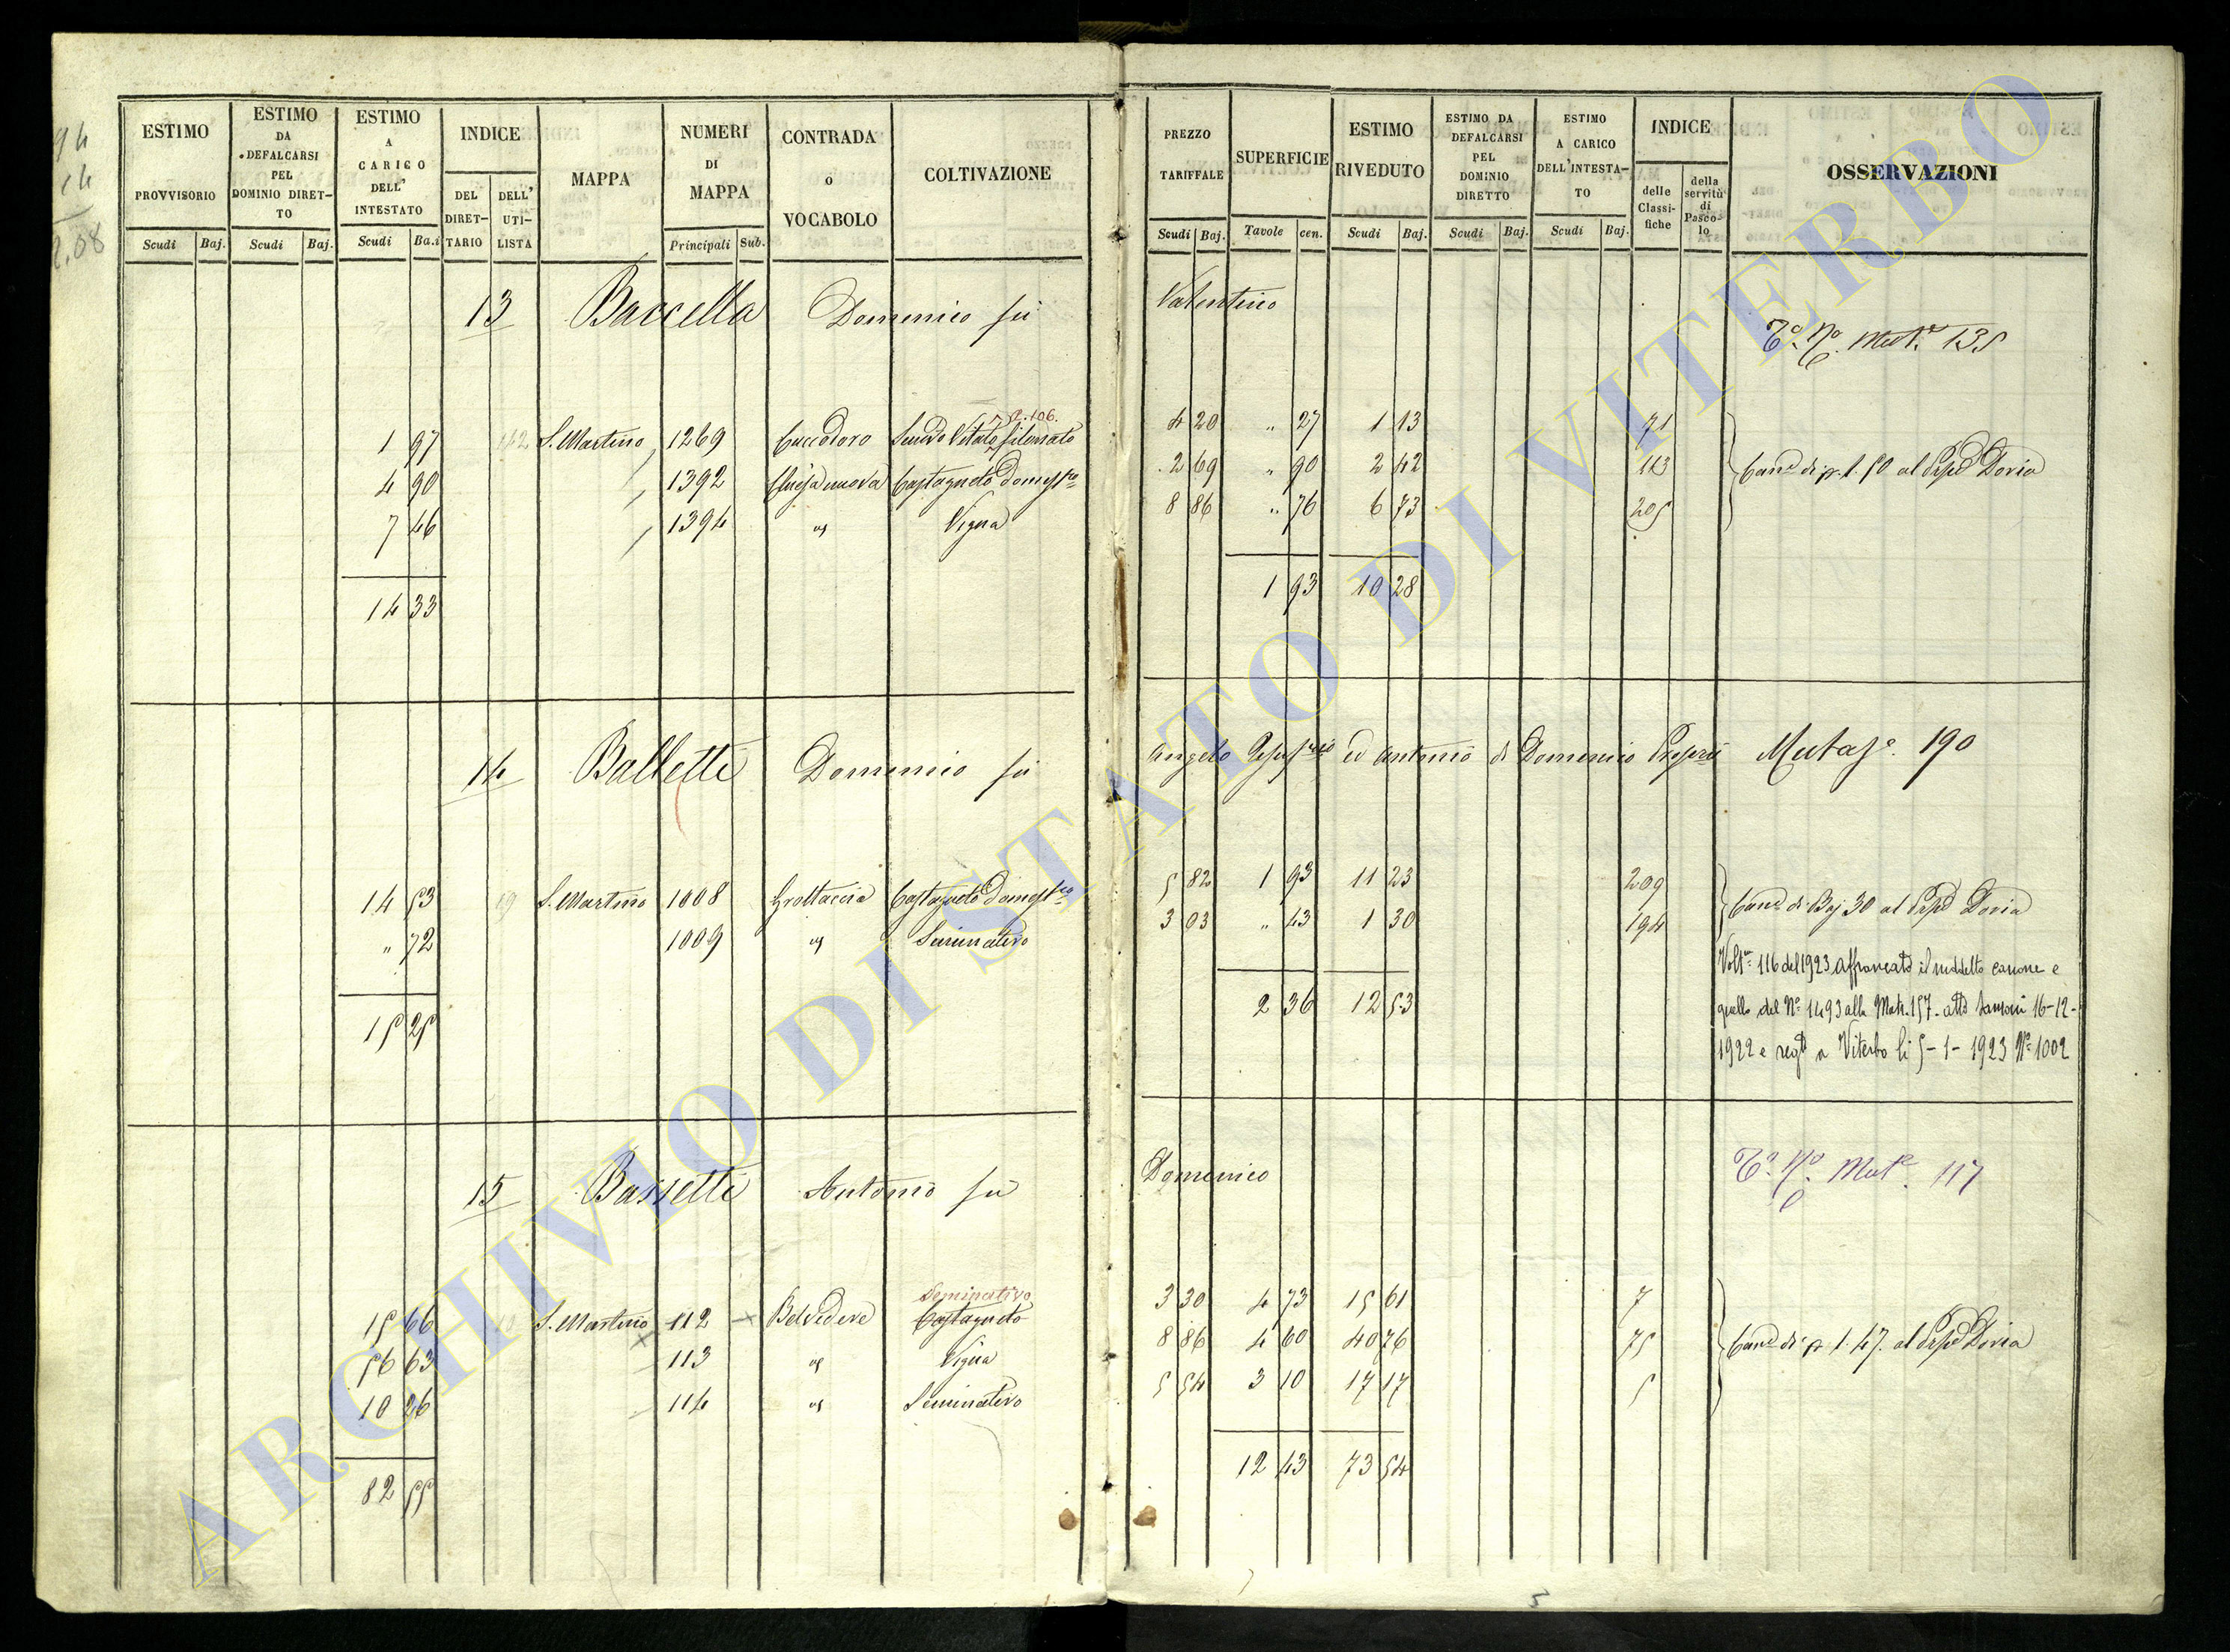 94
14
2.08
ESTIMO PROVVISORIO
Scudi Baj.
ESTIMO DA DEFALCARSI PEL DOMINIO DIRET-TO
Scudi Baj.
ESTIMO A CARICO DELL' INTESTATO
Scudi Ba.i
INDICE
DEL DIRET-TARIO
DELL' UTI-LISTA
MAPPA
NUMERI DI MAPPA
Principali Sub.
CONTRADA o VOCABOLO
COLTIVAZIONE
PREZZO TARIFFALE
Scudi Baj.
SUPERFICIE
Tavole cen.
ESTIMO RIVEDUTO
Scudi Baj.
ESTIMO DA DEFALCARSI PEL DOMINIO DIRETTO
Scudi Baj.
ESTIMO A CARICO DELL'INTESTA-TO
Scudi Baj.
INDICE
delle Classi-fiche
della servitù di Pasco-lo
OSSERVAZIONI
13 Baccella Domenico fu Valentino
Mut.e 135
2.106.
1 97 S. Martino 1269 Cuccodoro Semvo Vitato 4 20 " 27 1 13 71
4 90 1392 Chiesa nuova Castagneto Domestco 2 69 " 90 2 42 113 Canne di p. 1.50 al Doria
7 46 1394 id Vigna 8 86 " 76 6 73 205
14 33 1 93 10 28
14 Balletti Domenico fu Angelo ed Antonio di Domenico Mutaze. 190
14 53 S. Martino 1008 Grottaccia Castagneto Domestco 5 82 1 93 11 23 209 Canne di Baj 30 al Doria
" 72 1009 id Seminativo 3 03 " 43 1 30 194
15 25 2 36 12 53
Volra 116 del 1923 affrancato il suddetto canone e
quello del No 1493 alla Matr. 157 - atto 16-12-
1922 e regto a Viterbo li 5-1-1923 No 1002
15 Bassetti Antonio fu Domenico
Mut.e 117
Seminativo
15 66 S. Martino 112 Belvedere Castagneto 3 30 4 73 15 61 7
56 63 113 id Vigna 8 86 4 60 40 76 75 Canne di p 1.47. al Doria
10 26 114 id Seminativo 5 54 3 10 17 17 5
82 55 12 43 73 54
ARCHIVIO DI STATO DI VITERBO